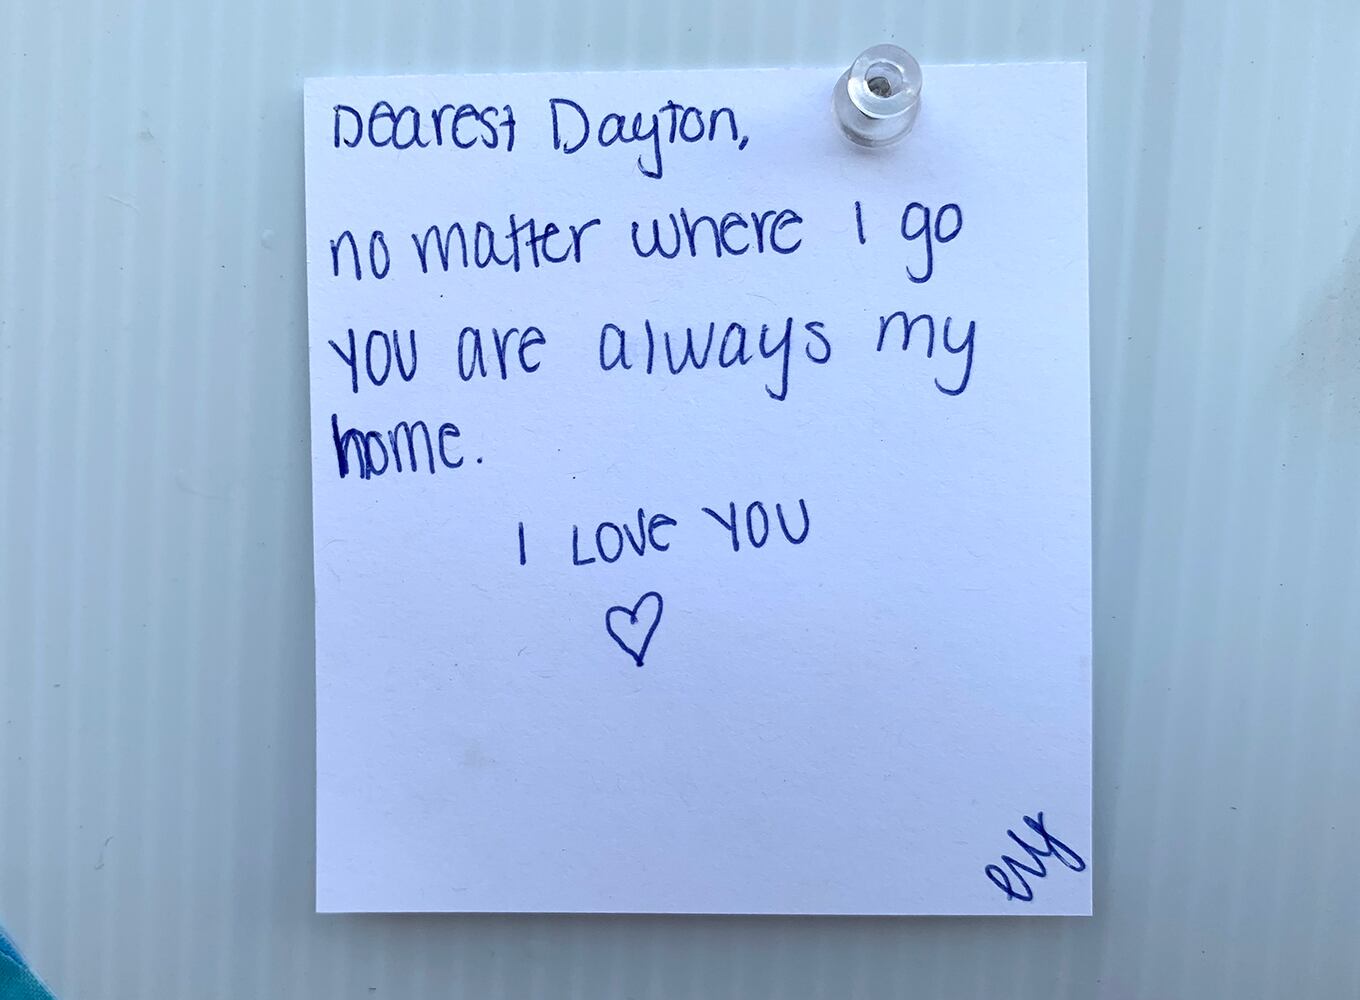 Dearest Dayton,
no matter where I go
you are always my
home.
I LOVE YOU
♡